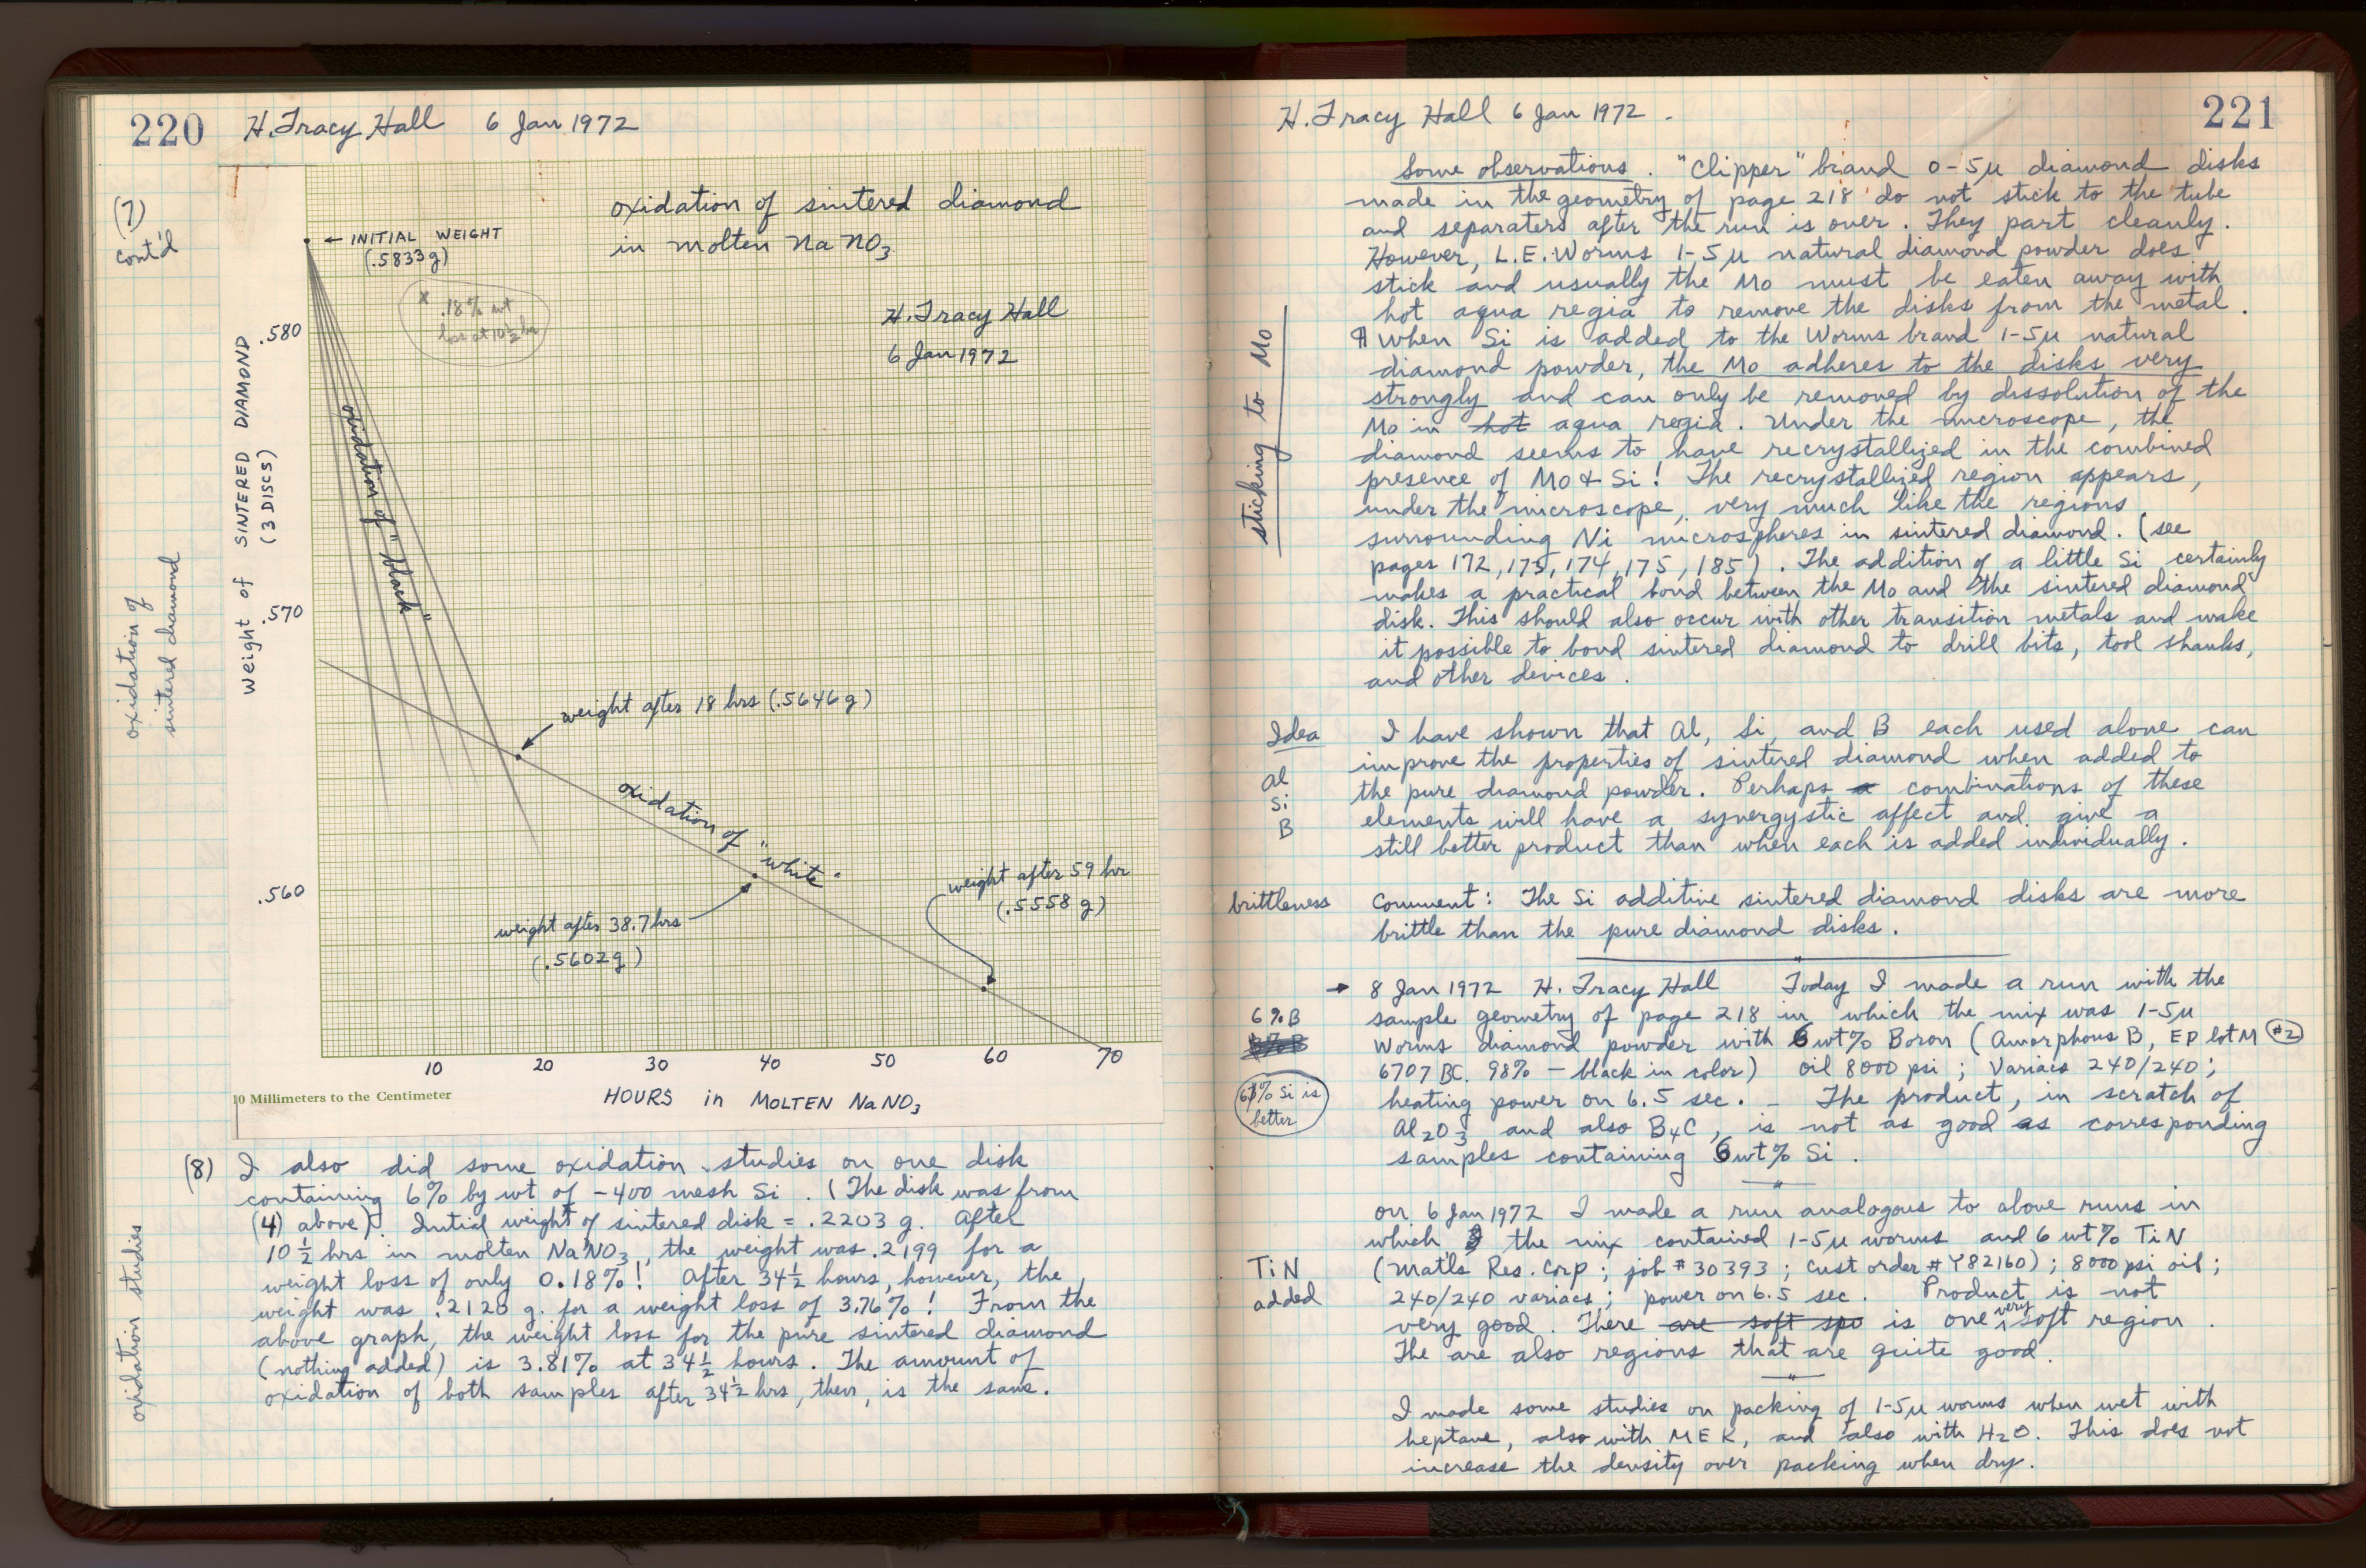 220 H. Tracy Hall 6 Jan 1972
(7)
cont'd
oxidation of sintered diamond
in molten NaNO3
← INITIAL WEIGHT
(.5833g)
* .18% wt
loss at 10½ hr
H. Tracy Hall
6 Jan 1972
.580
.570
.560
Weight of SINTERED DIAMOND
(3 DISCS)
oxidation of
sintered diamond
oxidation of "black"
weight after 18 hrs (.5646g)
oxidation of "white"
weight after 38.7 hrs
(.5602g)
weight after 59 hr
(.5558 g)
10 20 30 40 50 60 70
10 Millimeters to the Centimeter
HOURS in MOLTEN NaNO3
oxidation studies
(8) I also did some oxidation studies on one disk
containing 6% by wt of -400 mesh Si. (The disk was from
(4) above). Initial weight of sintered disk = .2203 g. After
10½ hrs in molten NaNO3, the weight was .2199 for a
weight loss of only 0.18%! After 34½ hours, however, the
weight was .2120 g. for a weight loss of 3.76%! From the
above graph, the weight loss for the pure sintered diamond
(nothing added) is 3.81% at 34½ hours. The amount of
oxidation of both samples after 34½ hrs, then, is the same.
H. Tracy Hall 6 Jan 1972. 221
Some observations. "Clipper" brand 0-5µ diamond disks
made in the geometry of page 218 do not stick to the tube
and separaters after the run is over. They part cleanly.
However, L.E. Worms 1-5µ natural diamond powder does
stick and usually the Mo must be eaten away with
hot aqua regia to remove the disks from the metal.
sticking to Mo
¶ When Si is added to the Worms brand 1-5µ natural
diamond powder, the Mo adheres to the disks very
strongly and can only be removed by dissolution of the
Mo in hot aqua regia. Under the microscope, the
diamond seems to have recrystallized in the combined
presence of Mo & Si! The recrystallized region appears,
under the microscope, very much like the regions
surrounding Ni microspheres in sintered diamond. (see
pages 172, 173, 174, 175, 185). The addition of a little Si certainly
makes a practical bond between the Mo and the sintered diamond
disk. This should also occur with other transition metals and make
it possible to bond sintered diamond to drill bits, tool shanks,
and other devices.
Idea
Al
Si
B
I have shown that Al, Si, and B each used alone can
improve the properties of sintered diamond when added to
the pure diamond powder. Perhaps a combinations of these
elements will have a synergystic affect and give a
still better product than when each is added individually.
brittleness Comment: The Si additive sintered diamond disks are more
brittle than the pure diamond disks.
→ 8 Jan 1972 H. Tracy Hall Today I made a run with the
6%B sample geometry of page 218 in which the mix was 1-5µ
Worms diamond powder with 6 wt% Boron (Amorphous B, EP lot M #2
6707 BC. 98% - black in color) oil 8000 psi; Variacs 240/240;
6% Si is
better
heating power on 6.5 sec. - The product, in scratch of
Al2O3 and also B4C, is not as good as corresponding
samples containing 6 wt% Si.
On 6 Jan 1972 I made a run analogous to above runs in
which the mix contained 1-5µ worms and 6 wt% TiN
TiN
added
(Mat'ls Res. Corp; job #30393; cust order #Y82160); 8000 psi oil;
240/240 variacs; power on 6.5 sec. Product is not
very good. There are soft spo is one very soft region.
The are also regions that are quite good.
I made some studies on packing of 1-5µ worms when wet with
heptane, also with MEK, and also with H2O. This does not
increase the density over packing when dry.